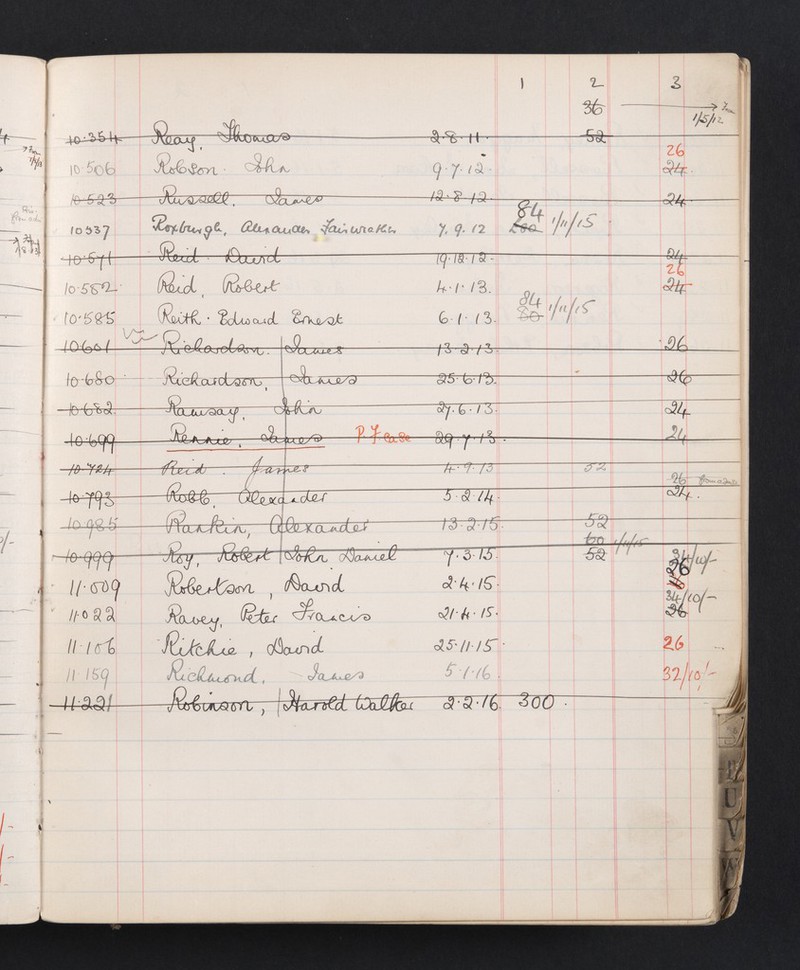 1 2 3
36
1/5/12
10·354 Reay, Thomas 2·8·11· 52
26
10 506 Robson· John 9·7·12· 24·
10·523 Russell, James 12·8·12· 24·
84
10537 Roxburgh, Alexander Fairweather 7·9·12 1/11/15
10·571 Reid· David 19·12·12· 24
26
10·582· Reid, Robert 4·1·13. 24
84
10·585 Reith· Edward Ernest 6·1·13. 80 1/11/15
10601 Richardson. James 13·2·13· 26
10·680 Richardson, James 25·6·13. 26
10·682. Ramsay, John 27·6·13. 24
10·699 Rennie, James P.F. case 29·7·13. 24
10·724 Reid. James 4·9·13 52
26
10·793 Robb, Alexander 5·2·14· 24.
10·985 Rankin, Alexander 13·2·15. 52
60 1/11/15
10·999 Roy, Robert John Daniel 7·3·15. 52
34/10/-
26
11·009 Robertson, David 2·4·15·
34/10/-
11·022 Ravey, Peter Francis 21·4·15· 26
11·106 Ritchie, David 25·11·15· 26
11·159 Richmond, James 5·1·16. 32/10/-
11·221 Robinson, Harold Walker 2·2·16 300·
U
V
W